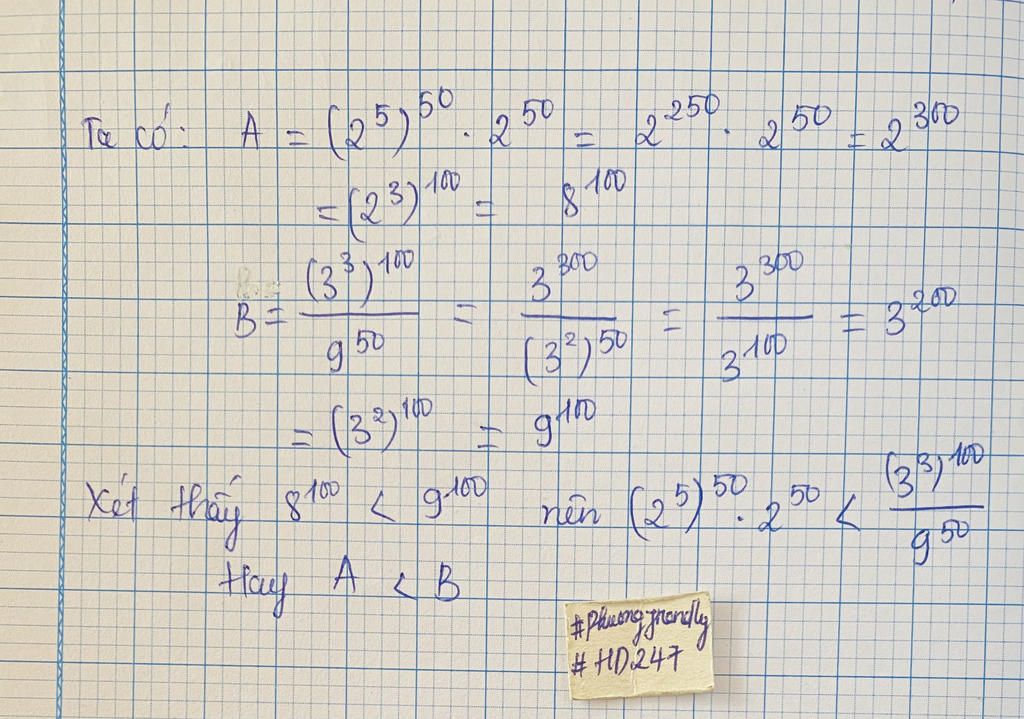 Ta có: A = (2^5)^50 . 2^50 = 2^250 . 2^50 = 2^300
= (2^3)^100 = 8^100
B = (3^3)^100 / 9^50 = 3^300 / (3^2)^50 = 3^300 / 3^100 = 3^200
= (3^2)^100 = 9^100
Xét thấy 8^100 < 9^100 nên (2^5)^50 . 2^50 < (3^3)^100 / 9^50
Hay A < B
#HD247